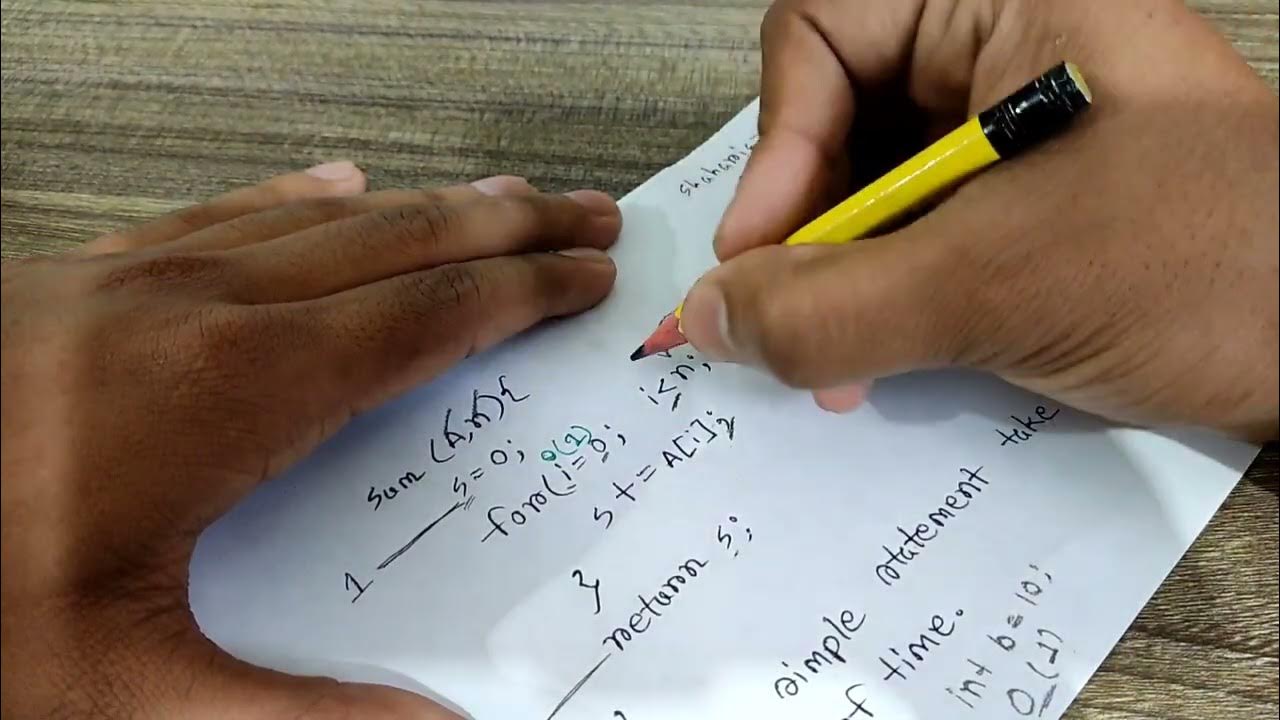 sum (A,n){
1 s=0;
O(1)
for(i=0; i<n;
s+=A[i];
}
return s;
simple statement take
of time.
int b=10;
O(1)